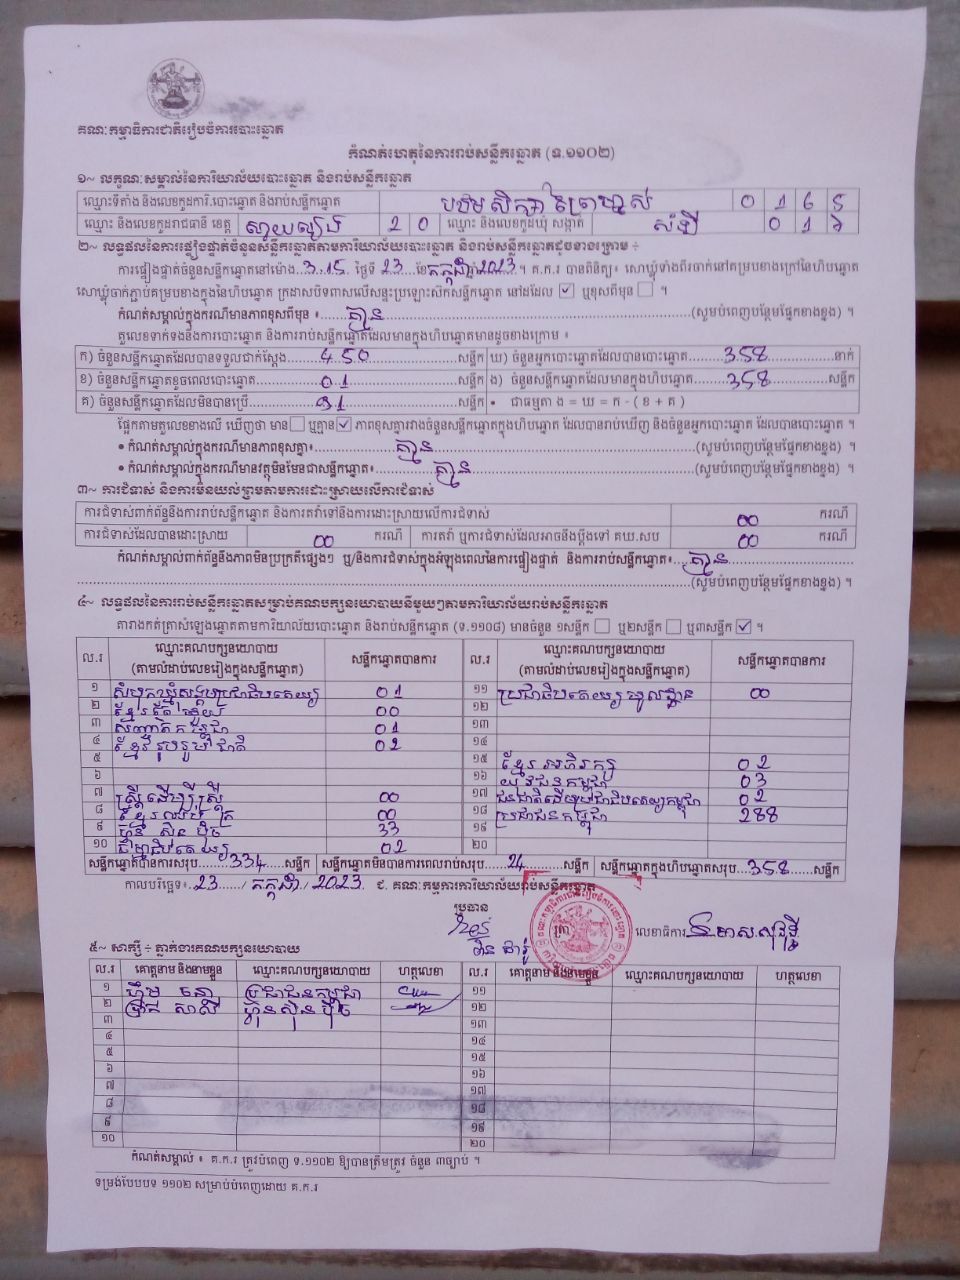 គណៈកម្មាធិការជាតិរៀបចំការបោះឆ្នោត
កំណត់ហេតុនៃការរាប់សន្លឹកឆ្នោត (ទ.១១០២)
១~ លក្ខណៈសម្គាល់នៃការិយាល័យបោះឆ្នោត និងរាប់សន្លឹកឆ្នោត
ឈ្មោះទីតាំង និងលេខកូដការិ.បោះឆ្នោត និងរាប់សន្លឹកឆ្នោត បឋមសិក្សា 0 1 6 5
ឈ្មោះ និងលេខកូដរាជធានី ខេត្ត ស្វាយរៀង 2 0 ឈ្មោះ និងលេខកូដឃុំ សង្កាត់ 0 1
២~ លទ្ធផលនៃការផ្ទៀងផ្ទាត់ចំនួនសន្លឹកឆ្នោតតាមការិយាល័យបោះឆ្នោត និងរាប់សន្លឹកឆ្នោតដូចខាងក្រោម ÷
ការផ្ទៀងផ្ទាត់ចំនួនសន្លឹកឆ្នោតនៅម៉ោង 3.15 ថ្ងៃទី 23 ខែ កក្កដា ឆ្នាំ 2023 ។ គ.ក.រ បានពិនិត្យ៖ សោឃ្លុំទាំងពីរចាក់នៅគម្របខាងក្រៅនៃហិបឆ្នោត
សោឃ្លុំចាក់ភ្ជាប់គម្របខាងក្នុងនៃហិបឆ្នោត ក្រដាសបិទពាសលើសន្ទះប្រឡោះសឹកសន្លឹកឆ្នោត នៅដដែល ☑ ឬខុសពីមុន ☐ ។
កំណត់សម្គាល់ក្នុងករណីមានភាពខុសពីមុន ៖ គ្មាន (សូមបំពេញបន្ថែមផ្នែកខាងខ្នង) ។
តួលេខទាក់ទងនឹងការបោះឆ្នោត និងការរាប់សន្លឹកឆ្នោតដែលមានក្នុងហិបឆ្នោតមានដូចខាងក្រោម ៖
ក) ចំនួនសន្លឹកឆ្នោតដែលបានទទួលជាក់ស្តែង 450 សន្លឹក ឃ) ចំនួនអ្នកបោះឆ្នោតដែលបានបោះឆ្នោត 358 នាក់
ខ) ចំនួនសន្លឹកឆ្នោតខូចពេលបោះឆ្នោត 01 សន្លឹក ង) ចំនួនសន្លឹកឆ្នោតដែលមានក្នុងហិបឆ្នោត 358 សន្លឹក
គ) ចំនួនសន្លឹកឆ្នោតដែលមិនបានប្រើ 91 សន្លឹក • ជាធម្មតា ង = ឃ = ក - ( ខ + គ )
ផ្អែកតាមតួលេខខាងលើ ឃើញថា មាន ☐ ឬគ្មាន ☑ ភាពខុសគ្នារវាងចំនួនសន្លឹកឆ្នោតក្នុងហិបឆ្នោត ដែលបានរាប់ឃើញ និងចំនួនអ្នកបោះឆ្នោត ដែលបានបោះឆ្នោត ។
• កំណត់សម្គាល់ក្នុងករណីមានភាពខុសគ្នា៖ គ្មាន (សូមបំពេញបន្ថែមផ្នែកខាងខ្នង) ។
• កំណត់សម្គាល់ក្នុងករណីមានវត្ថុមិនមែនជាសន្លឹកឆ្នោត៖ គ្មាន (សូមបំពេញបន្ថែមផ្នែកខាងខ្នង) ។
៣~ ការជំទាស់ និងការមិនយល់ព្រមតាមការដោះស្រាយលើការជំទាស់
ការជំទាស់ពាក់ព័ន្ធនឹងការរាប់សន្លឹកឆ្នោត និងការតវ៉ាទៅនឹងការដោះស្រាយលើការជំទាស់ 00 ករណី
ការជំទាស់ដែលបានដោះស្រាយ 00 ករណី ការតវ៉ា ឬការជំទាស់ដែលអាចនឹងប្តឹងទៅ គឃ.សប 00 ករណី
កំណត់សម្គាល់ពាក់ព័ន្ធនឹងភាពមិនប្រក្រតីផ្សេងៗ ឬ/និងការជំទាស់ក្នុងអំឡុងពេលនៃការផ្ទៀងផ្ទាត់ និងការរាប់សន្លឹកឆ្នោត៖ គ្មាន
(សូមបំពេញបន្ថែមផ្នែកខាងខ្នង) ។
៤~ លទ្ធផលនៃការរាប់សន្លឹកឆ្នោតសម្រាប់គណបក្សនយោបាយនីមួយៗតាមការិយាល័យរាប់សន្លឹកឆ្នោត
តារាងកត់ត្រាសំឡេងឆ្នោតតាមការិយាល័យបោះឆ្នោត និងរាប់សន្លឹកឆ្នោត (ទ.១១០៨) មានចំនួន ១សន្លឹក ☐ ឬ២សន្លឹក ☐ ឬ៣សន្លឹក ☑ ។
ល.រ ឈ្មោះគណបក្សនយោបាយ (តាមលំដាប់លេខរៀងក្នុងសន្លឹកឆ្នោត) សន្លឹកឆ្នោតបានការ ល.រ ឈ្មោះគណបក្សនយោបាយ (តាមលំដាប់លេខរៀងក្នុងសន្លឹកឆ្នោត) សន្លឹកឆ្នោតបានការ
១ សំបុកឃ្មុំសង្គមប្រជាធិបតេយ្យ 01 ១១ ប្រជាធិបតេយ្យមូលដ្ឋាន 00
២ 00 ១២
៣ សញ្ជាតិកម្ពុជា 01 ១៣
៤ ខ្មែររួបរួមជាតិ 02 ១៤
៥ ១៥ ខ្មែរអភិរក្ស 02
៦ ១៦ យុវជនកម្ពុជា 03
៧ ស្ត្រីដើម្បីស្ត្រី 00 ១៧ ជនជាតិដើមប្រជាធិបតេយ្យកម្ពុជា 02
៨ 00 ១៨ ប្រជាជនកម្ពុជា 288
៩ ហ្វ៊ុនស៊ិនប៉ិច 33 ១៩
១០ 02 ២០
សន្លឹកឆ្នោតបានការសរុប 334 សន្លឹក សន្លឹកឆ្នោតមិនបានការពេលរាប់សរុប 24 សន្លឹក សន្លឹកឆ្នោតក្នុងហិបឆ្នោតសរុប 358 សន្លឹក
កាលបរិច្ឆេទ៖ 23 / កក្កដា / 2023 ជ. គណៈកម្មការការិយាល័យរាប់សន្លឹកឆ្នោត
ប្រធាន
ត្រា លេខាធិការ
៥~ សាក្សី ÷ ភ្នាក់ងារគណបក្សនយោបាយ
ល.រ គោត្តនាម និងនាមខ្លួន ឈ្មោះគណបក្សនយោបាយ ហត្ថលេខា ល.រ គោត្តនាម និងនាមខ្លួន ឈ្មោះគណបក្សនយោបាយ ហត្ថលេខា
១ ប្រជាជនកម្ពុជា ១១
២ ហ្វ៊ុនស៊ិនប៉ិច ១២
៣ ១៣
៤ ១៤
៥ ១៥
៦ ១៦
៧ ១៧
៨ ១៨
៩ ១៩
១០ ២០
កំណត់សម្គាល់ ៖ គ.ក.រ ត្រូវបំពេញ ទ.១១០២ ឱ្យបានត្រឹមត្រូវ ចំនួន ៣ច្បាប់ ។
ទម្រង់បែបបទ ១១០២ សម្រាប់បំពេញដោយ គ.ក.រ